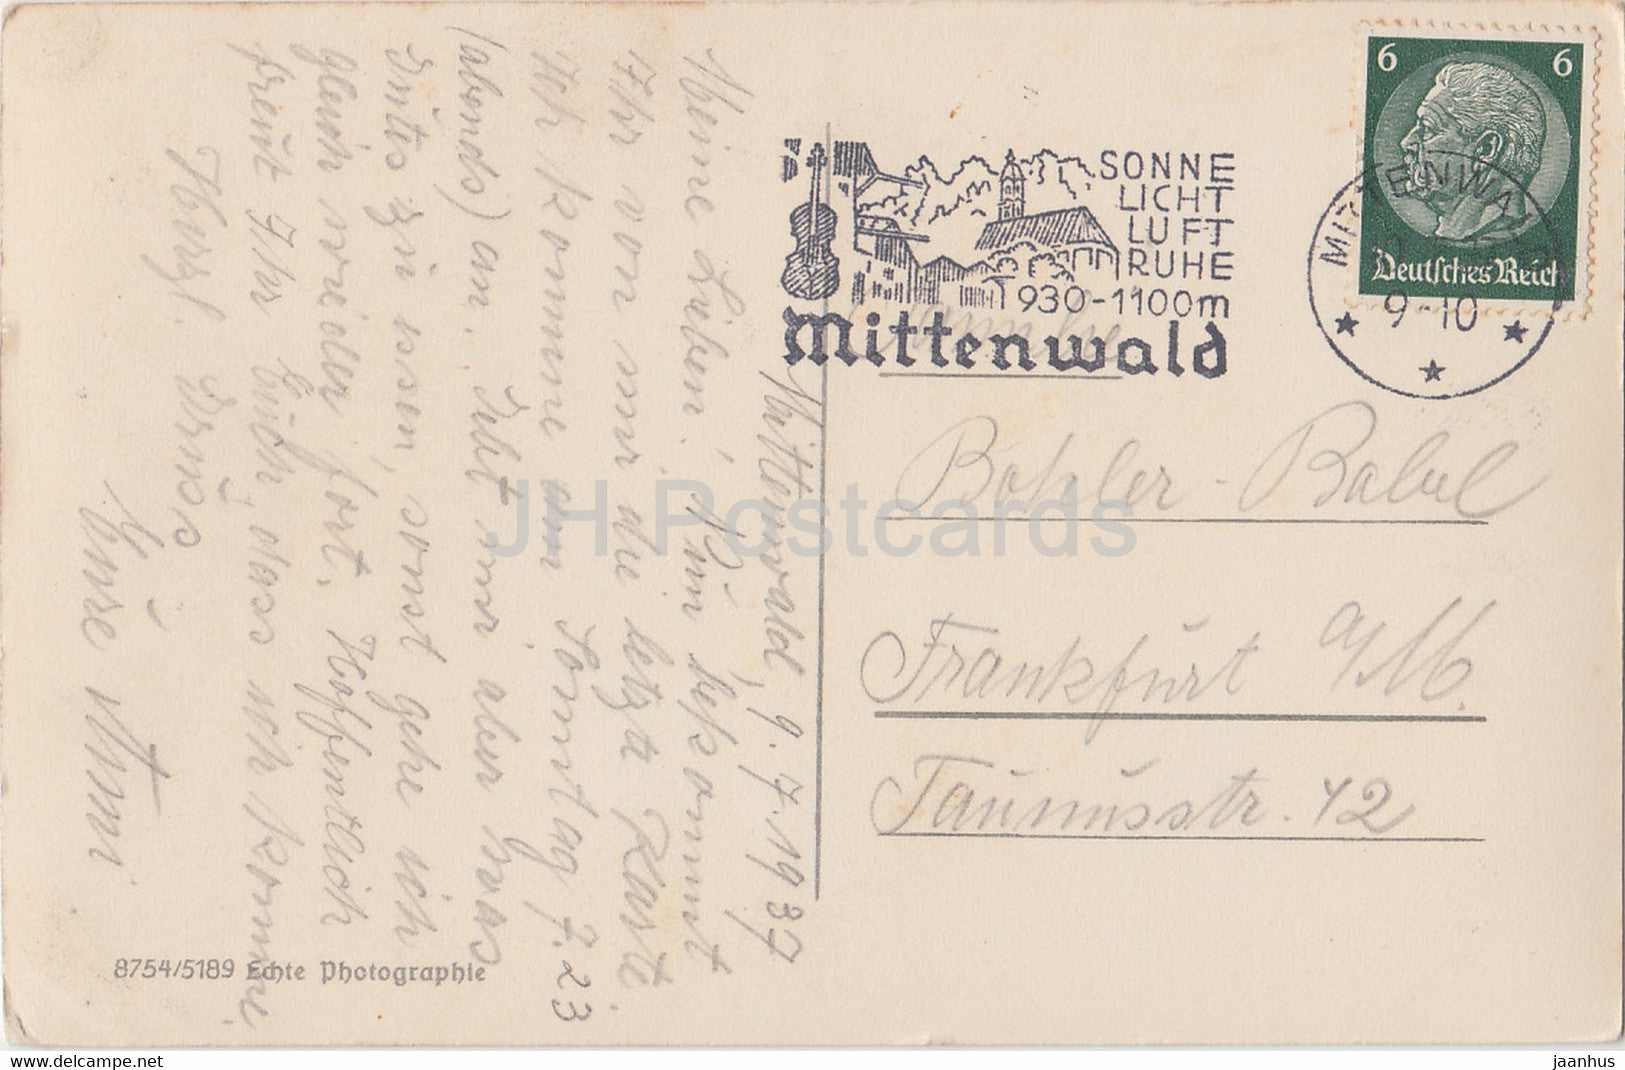 Mittenwald, 9.7.1937
Meine Lieben! Nun bekommt
Ihr von mir die letzte Karte
Ich komme am Sonntag 7.23
(abends) an. Sebt mir aber was
Gutes zu essen, sonst gehe ich
gleich wieder fort. Hoffentlich
freut Ihr Euch, dass ich komme.
Herzl. Gruss
Eure Anni
8754/5189 Echte Photographie
SONNE
LICHT
LUFT
RUHE
930-1100m
Mittenwald
6 6
Deutsches Reich
MITTENWALD
9-10
Familie
Bohler-Babel
Frankfurt a/M.
Taunusstr. 42
JH Postcards
www.delcampe.net
jaanhus